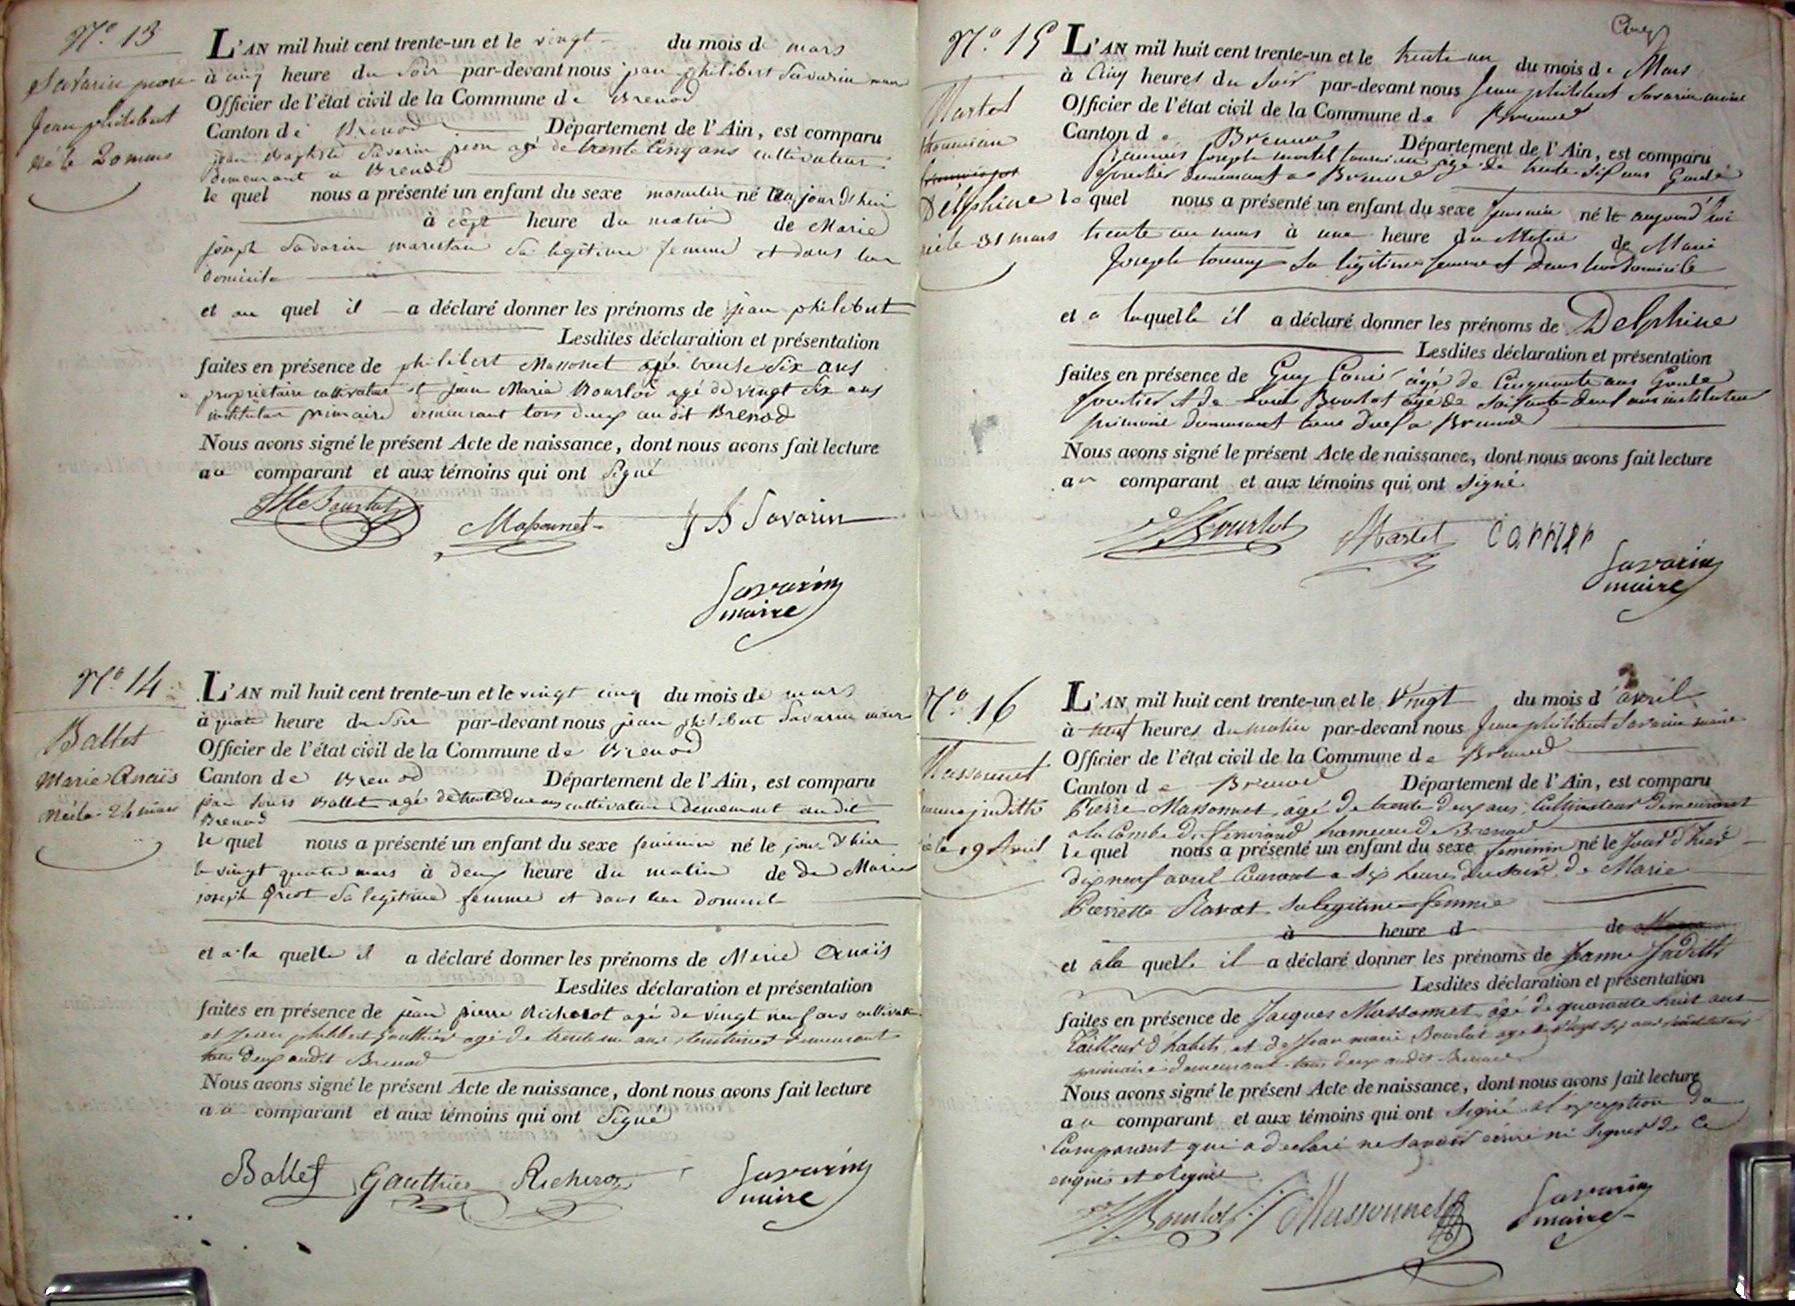 N.º 13
Savarin
Jean philibert
né le 20 mars
L'AN mil huit cent trente-un et le vingt du mois de mars
à cinq heure du soir par-devant nous jean philibert Savarin maire
Officier de l'état civil de la Commune de Brenod
Canton de Brenod Département de l'Ain, est comparu
jean Baptiste Savarin agé de trente cinq ans cultivateur
demeurant a Brenod
le quel nous a présenté un enfant du sexe masculin né aujourd'hui
à sept heure du matin de Marie
joseph Savarin sa legitime femme et dans leur
domicile
et au quel il a déclaré donner les prénoms de jean philibert
Lesdites déclaration et présentation
faites en présence de philibert Massonet agé trente six ans
propriétaire cultivateur et jean Marie Bourlot agé de vingt six ans
instituteur primaire demeurant tous deux au dit Brenod
Nous avons signé le présent Acte de naissance, dont nous avons fait lecture
au comparant et aux témoins qui ont signé
Massonnet J B Savarin
Savarin
maire
N.º 14
Ballet
Marie Anaïs
née le 24 mars
L'AN mil huit cent trente-un et le vingt cinq du mois de mars
à quatre heure du soir par-devant nous jean philibert Savarin maire
Officier de l'état civil de la Commune de Brenod
Canton de Brenod Département de l'Ain, est comparu
Ballet agé de trente deux ans cultivateur demeurant au dit
Brenod
le quel nous a présenté un enfant du sexe feminin né le jour d'hier
le vingt quatre mars à deux heure du matin de de Marie
joseph sa legitime femme et dans leur domicile
et a la quelle il a déclaré donner les prénoms de Marie Anaïs
Lesdites déclaration et présentation
faites en présence de jean pierre Richerot agé de vingt neuf ans cultivateur
et jean philibert Gauthier agé de trente un ans demeurant
tous deux audit Brenod
Nous avons signé le présent Acte de naissance, dont nous avons fait lecture
au comparant et aux témoins qui ont signé
Ballet Gauthier Richerot
Savarin
maire
Cinq
N.º 15
Martel
Delphine
née le 31 mars
L'AN mil huit cent trente-un et le trente un du mois de Mars
à Cinq heures du soir par-devant nous Jean philibert Savarin maire
Officier de l'état civil de la Commune de Brenod
Canton de Brenod Département de l'Ain, est comparu
françois joseph martel agé de trente six ans Garde
forestier demeurant a Brenod
le quel nous a présenté un enfant du sexe feminin né le aujourd'hui
trente un mars à une heure du Matin de Marie
Joseph sa légitime femme et dans leur domicile
et a laquelle il a déclaré donner les prénoms de Delphine
Lesdites déclaration et présentation
faites en présence de Guy âgé de Cinquante ans Garde
forestier et de Bourlot âgé de soixante deux ans instituteur
primaire demeurant tous deux a Brenod
Nous avons signé le présent Acte de naissance, dont nous avons fait lecture
au comparant et aux témoins qui ont signé
Bourlot Martel
Savarin
maire
N.º 16
Massonnet
Jeanne judith
née le 19 Avril
L'AN mil huit cent trente-un et le vingt du mois d'avril
à heures du matin par-devant nous Jean philibert Savarin maire
Officier de l'état civil de la Commune de Brenod
Canton de Brenod Département de l'Ain, est comparu
Pierre Massonnet agé de trente deux ans, cultivateur demeurant
a la Combe du hameau de Brenod
le quel nous a présenté un enfant du sexe feminin né le Jour d'hier
dix neuf avril courant a six heures du soir de Marie
Pierrette Ravat sa legitime femme
à heure d de
et a la quelle il a déclaré donner les prénoms de Jeanne Judith
Lesdites déclaration et présentation
faites en présence de Jacques Massonnet âgé de quarante huit ans
tailleur d'habits, et de Jean marie Bourlot agé de vingt six ans instituteur
primaire demeurant tous deux audit Brenod
Nous avons signé le présent Acte de naissance, dont nous avons fait lecture
au comparant et aux témoins qui ont signé a l'exception du
Comparant qui a declaré ne savoir écrire ni signer de ce
enquis et requis
Bourlot Massonnet
Savarin
maire